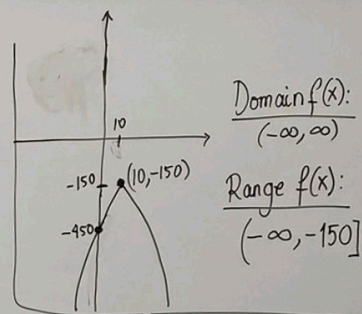 10
-150
(10,-150)
-450
Domain f(x):
(-∞, ∞)
Range f(x):
(-∞, -150]